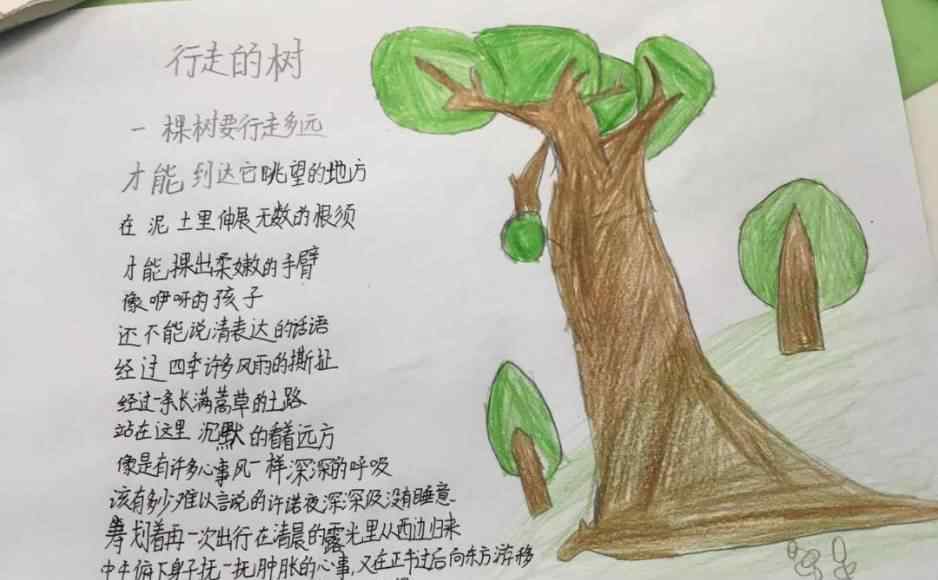 行走的树
一棵树要行走多远
才能到达它眺望的地方
在泥土里伸展无数的根须
才能探出柔嫩的手臂
像咿呀的孩子
还不能说清表达的话语
经过四季许多风雨的撕扯
经过一条长满蒿草的土路
站在这里沉默的看着远方
像是有许多心事风一样深深的呼吸
该有多少难以言说的许诺夜深深没有睡意
筹划着再一次出行在清晨的露光里从西边归来
中午俯下身子抚一抚肿胀的心事,又在正午过后向东方游移